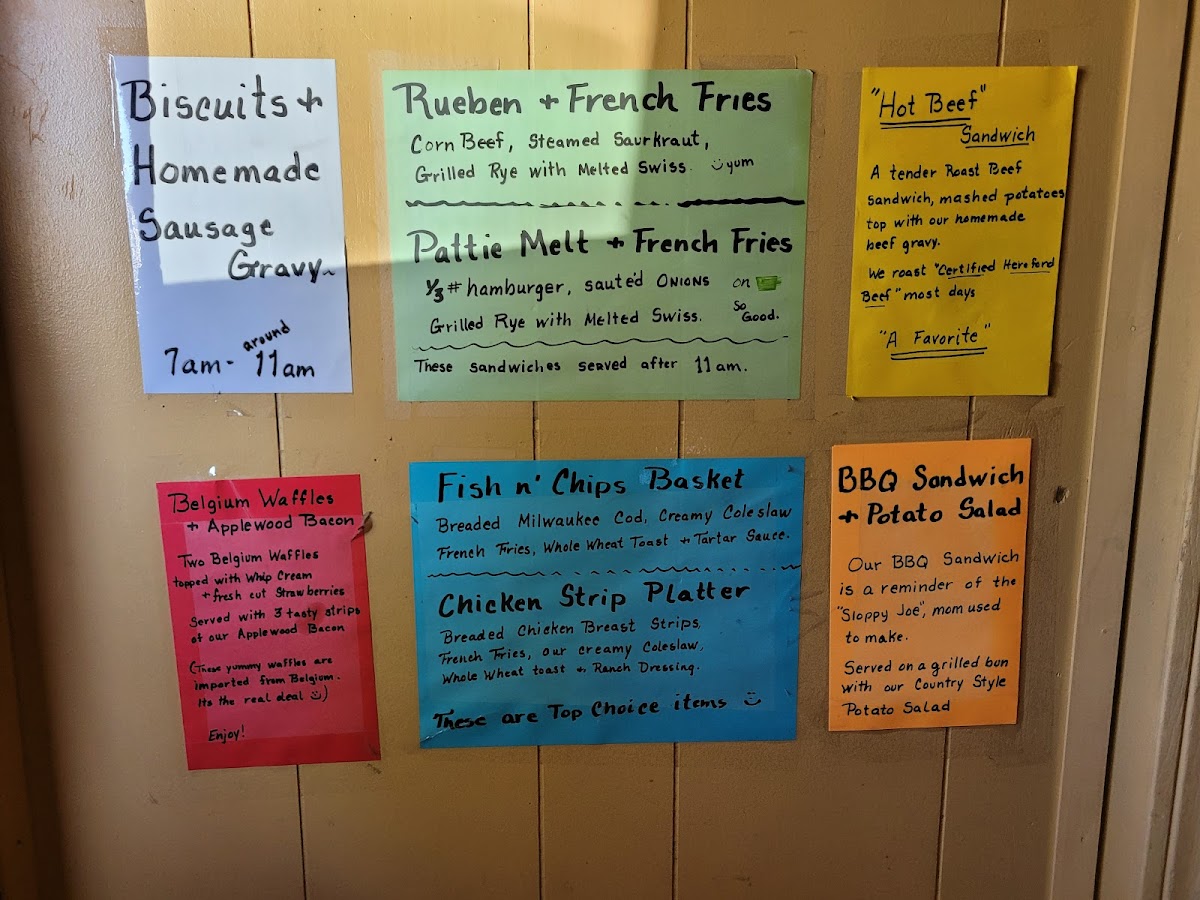 Biscuits +
Homemade
Sausage
Gravy
around
7am - 11am
Rueben + French Fries
Corn Beef, Steamed Saurkraut,
Grilled Rye with Melted Swiss. yum
Pattie Melt + French Fries
1/3 # hamburger, sauté'd Onions on
Grilled Rye with Melted Swiss. So Good.
These sandwiches served after 11am.
"Hot Beef"
Sandwich
A tender Roast Beef
sandwich, mashed potatoes
top with our homemade
beef gravy.
We roast "Certified Hereford
Beef" most days
"A Favorite"
Belgium Waffles
+ Applewood Bacon
Two Belgium Waffles
topped with Whip Cream
+ fresh cut Strawberries
Served with 3 tasty strips
of our Applewood Bacon
(These yummy waffles are
imported from Belgium.
Its the real deal ☺)
Enjoy!
Fish n' Chips Basket
Breaded Milwaukee Cod, Creamy Coleslaw
French Fries, Whole Wheat Toast + Tartar Sauce.
Chicken Strip Platter
Breaded Chicken Breast Strips,
French Fries, our creamy Coleslaw,
Whole Wheat toast + Ranch Dressing.
These are Top Choice items ☺
BBQ Sandwich
+ Potato Salad
Our BBQ Sandwich
is a reminder of the
"Sloppy Joe", mom used
to make.
Served on a grilled bun
with our Country Style
Potato Salad